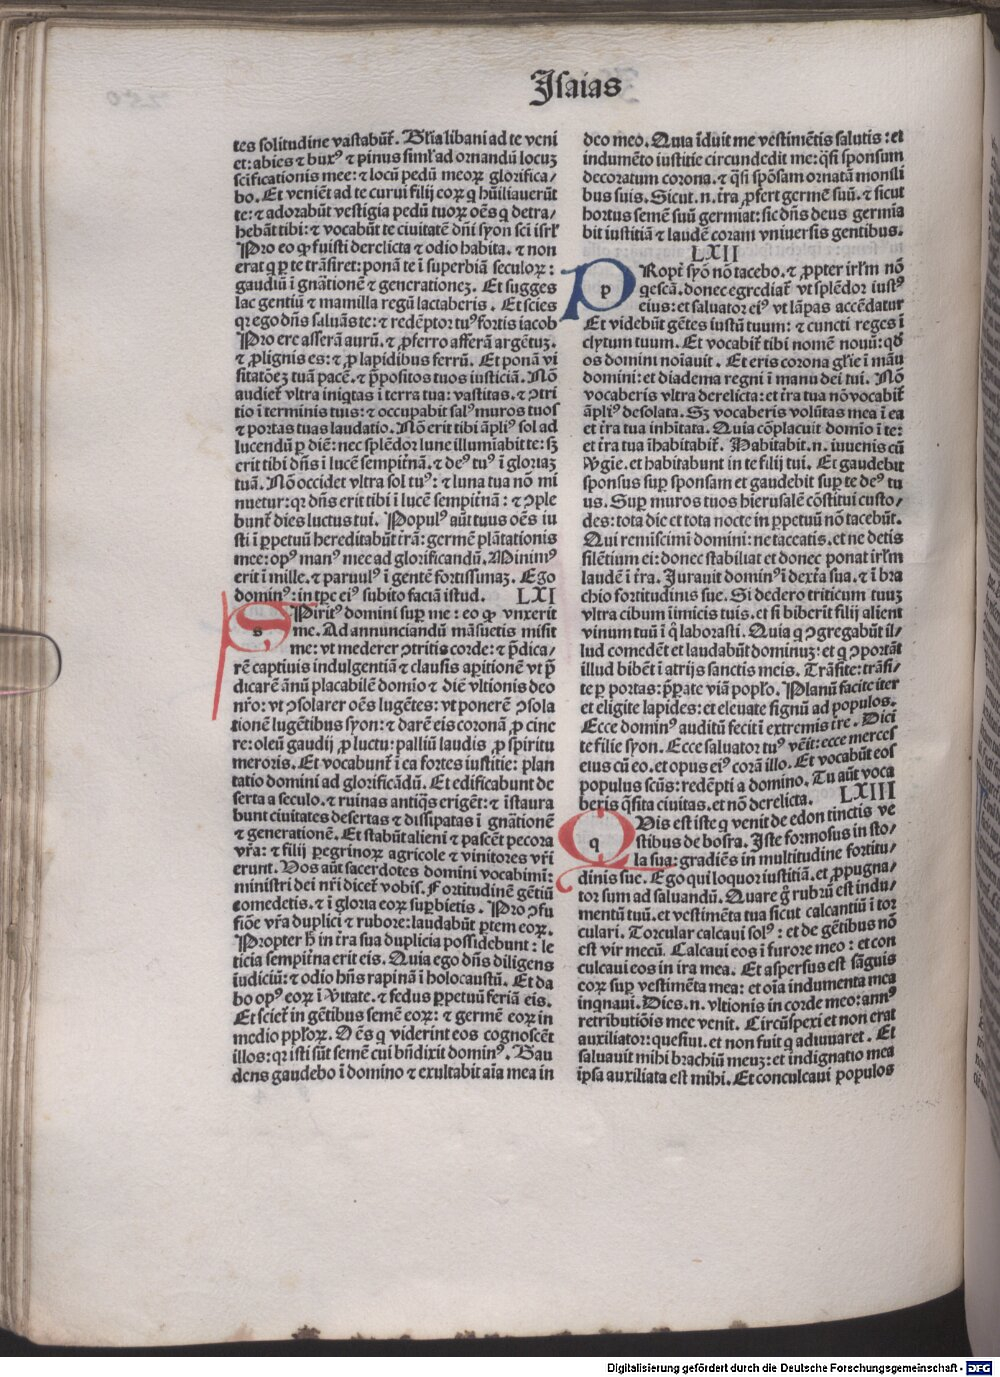 Isaias
tes solitudine vastabūt̄. Gl̄ia libani ad te veni
et: abies ⁊ buxꝰ ⁊ pinus siml̄ ad ornandū locuꝫ
scificationis mee: ⁊ locū pedū meoꝝ glorifica/
bo. Et veniēt ad te curui filij eoꝝ q hūiliauerūt
te: ⁊ adorabūt vestigia pedū tuoꝝ oēs q detra/
hebāt tibi: ⁊ vocabūt te ciuitatē dn̄i syon sci isrl̄
Pro eo ꝙ fuisti derelicta ⁊ odio habita. ⁊ non
erat q ꝑ te trāsiret: ponā te ī superbiā seculoꝝ:
gaudiū ī gn̄ationē ⁊ generationeꝫ. Et sugges
lac gentiū ⁊ mamilla regū lactaberis. Et scies
qꝛ ego dn̄s saluās te: ⁊ redēptor tuꝰ fortis iacob
Pro ere afferā aurū. ⁊ ꝓ ferro afferā argētuꝫ.
⁊ ꝓ lignis es: ⁊ ꝓ lapidibus ferrū. Et ponā vi
sitatōeꝫ tuā pacē. ⁊ p̄positos tuos iusticiā. Nō
audiet̄ vltra iniqtas ī terra tua: vastitas. ⁊ ↄtri
tio ī terminis tuis: ⁊ occupabit salꝰ muros tuos
⁊ portas tuas laudatio. Nō erit tibi āpliꝰ sol ad
lucendū ꝑ diē: nec splēdor lune illumīabit te: sꝫ
erit tibi dn̄s ī lucē sempit̄nā. ⁊ deꝰ tuꝰ ī gloriaꝫ
tuā. Nō occidet vltra sol tuꝰ: ⁊ luna tua nō mi
nuetur: qꝛ dn̄s erit tibi ī lucē sempit̄nā: ⁊ ↄple
bunt̄ dies luctus tui. Populꝰ aūt tuus oēs iu
sti ī ꝑpetuū hereditabūt t̄rā: germē plātationis
mee: opꝰ manꝰ mee ad glorificandū. Minimꝰ
erit ī mille. ⁊ paruulꝰ ī gentē fortissimaꝫ. Ego
dominꝰ: in tp̄e eiꝰ subito faciā istud. LXI
s Piritꝰ domini suꝑ me: eo ꝙ vnxerit
me. Ad annunciandū māsuetis misit
me: vt mederer ↄtritis corde: ⁊ p̄dica/
rē captiuis indulgentiā ⁊ clausis apitionē vt p̄
dicarē ānū placabilē domīo ⁊ diē vltionis deo
nr̄o: vt ↄsolarer oēs lugētes: vt ponerē ↄsola
tionē lugētibus syon: ⁊ darē eis coronā ꝓ cine
re: oleū gaudij ꝓ luctu: palliū laudis ꝓ spiritu
meroris. Et vocabunt̄ ī ea fortes iustitie: plan
tatio domini ad glorificādū. Et edificabunt de
serta a seculo. ⁊ ruinas antiqs erigēt: ⁊ īstaura
bunt ciuitates desertas ⁊ dissipatas ī gn̄ationē
⁊ generationē. Et stabūt alieni ⁊ pascēt pecora
vr̄a: ⁊ filij ꝑegrinoꝝ agricole ⁊ vinitores vr̄i
erunt. Vos aūt sacerdotes domini vocabimī:
ministri dei nr̄i dicet̄ vobis. Fortitudinē gētiū
comedetis. ⁊ ī gloria eoꝝ suꝑbietis. Pro ↄfu
siōe vr̄a duplici ⁊ rubore: laudabūt ꝑtem eoꝝ.
Propter h̄ in t̄ra sua duplicia possidebunt: le
ticia sempit̄na erit eis. Quia ego dn̄s diligens
iudiciū: ⁊ odio hn̄s rapinā ī holocaustū. Et da
bo opꝰ eoꝝ ī v̄itate. ⁊ fedus ꝑpetuū feriā eis.
Et sciet̄ in gētibus semē eoꝝ: ⁊ germē eoꝝ in
medio pplōꝝ. Oēs q viderint eos cognoscēt
illos: qꝛ isti sūt semē cui bn̄dixit dominꝰ. Gau
dens gaudebo ī domino ⁊ exultabit aīa mea in
deo meo. Quia īduit me vestimētis salutis: et
indumēto iustitie circundedit me: qsi sponsum
decoratum corona. ⁊ qsi spōsam ornatā monili
bus suis. Sicut. n. t̄ra ꝓfert germē suū. ⁊ sicut
hortus semē suū germiat: sic dn̄s deus germia
bit iustitiā ⁊ laudē coram vniuersis gentibus.
LXII
p Ropt̄ syō nō tacebo. ⁊ ꝓpter irl̄m nō
qescā. donec egrediat̄ vt splēdor iustꝰ
eius: et saluator eiꝰ vt lāpas accēdatur
Et videbūt gētes iustū tuum: ⁊ cuncti reges ī
clytum tuum. Et vocabit̄ tibi nomē nouū: qd̄
os domini noīauit. Et eris corona gl̄ie ī māu
domini: et diadema regni ī manu dei tui. Nō
vocaberis vltra derelicta: et t̄ra tua nō vocabit̄
āpliꝰ desolata. Sꝫ vocaberis volūtas mea ī ea
et t̄ra tua inhītata. Quia cōplacuit domīo ī te:
et t̄ra tua īhabitabit̄. Habitabit. n. iuuenis cū
v̄gie. et habitabunt in te filij tui. Et gaudebit
sponsus suꝑ sponsam et gaudebit suꝑ te deꝰ tu
us. Suꝑ muros tuos hierusalē cōstitui custo/
des: tota die et tota nocte in ꝑpetuū nō tacebūt.
Qui remīscimī domini: ne taceatis. et ne detis
silētium ei: donec stabiliat et donec ponat irl̄m
laudē ī t̄ra. Jurauit dominꝰ ī dext̄a sua. ⁊ ī bra
chio fortitudinis sue. Si dedero triticum tuuꝫ
vltra cibum īimicis tuis. et si biberīt filij alieni
vinum tuū ī q̄ laborasti. Quia q ↄgregabūt il/
lud comedēt et laudabūt dominuꝫ: et q ↄportāt
illud bibēt ī atrijs sanctis meis. Trāsite: trāsi/
te ꝑ portas: p̄ꝑate viā popl̄o. Planū facite iter
et eligite lapides: et eleuate signū ad populos.
Ecce dominꝰ auditū fecit ī extremis t̄re. Dici
te filie syon. Ecce saluator tuꝰ vēit: ecce merces
eius cū eo. et opus eiꝰ corā illo. Et vocabūt eos
populus scūs: redēpti a domino. Tu aūt voca
beris q̄sita ciuitas. et nō derelicta. LXIII
q Uis est iste q venit de edon tinctis ve
stibus de bosra. Iste formosus in sto/
la sua: gradiēs in multitudine fortitu/
dinis sue. Ego qui loquor iustitiā. et ꝓpugna/
tor sum ad saluandū. Quare g̊ rubrū est indu/
mentū tuū. et vestimēta tua sicut calcantiū ī tor
culari. Torcular calcaui solꝰ: et de gētibus nō
est vir mecū. Calcaui eos ī furore meo: et con
culcaui eos in ira mea. Et aspersus est sāguis
eoꝝ suꝑ vestimēta mea: et oīa indumenta mea
inqnaui. Dies. n. vltionis in corde meo: annꝰ
retributiōis mee venit. Circūspexi et non erat
auxiliator: quesiui. et non fuit q adiuuaret. Et
saluauit mihi brachiū meuꝫ: et indignatio mea
ip̄sa auxiliata est mihi. Et conculcaui populos
Digitalisierung gefördert durch die Deutsche Forschungsgemeinschaft - DFG